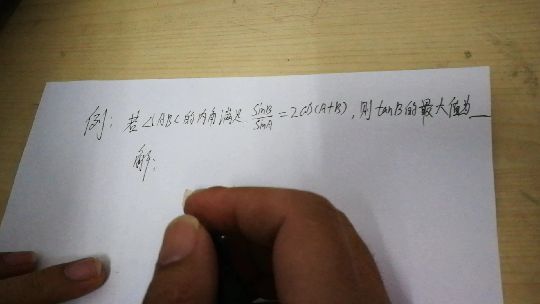 例：若△ABC的内角满足 sinB/sinA=2cos(A+B)，则tanB的最大值为__
解：